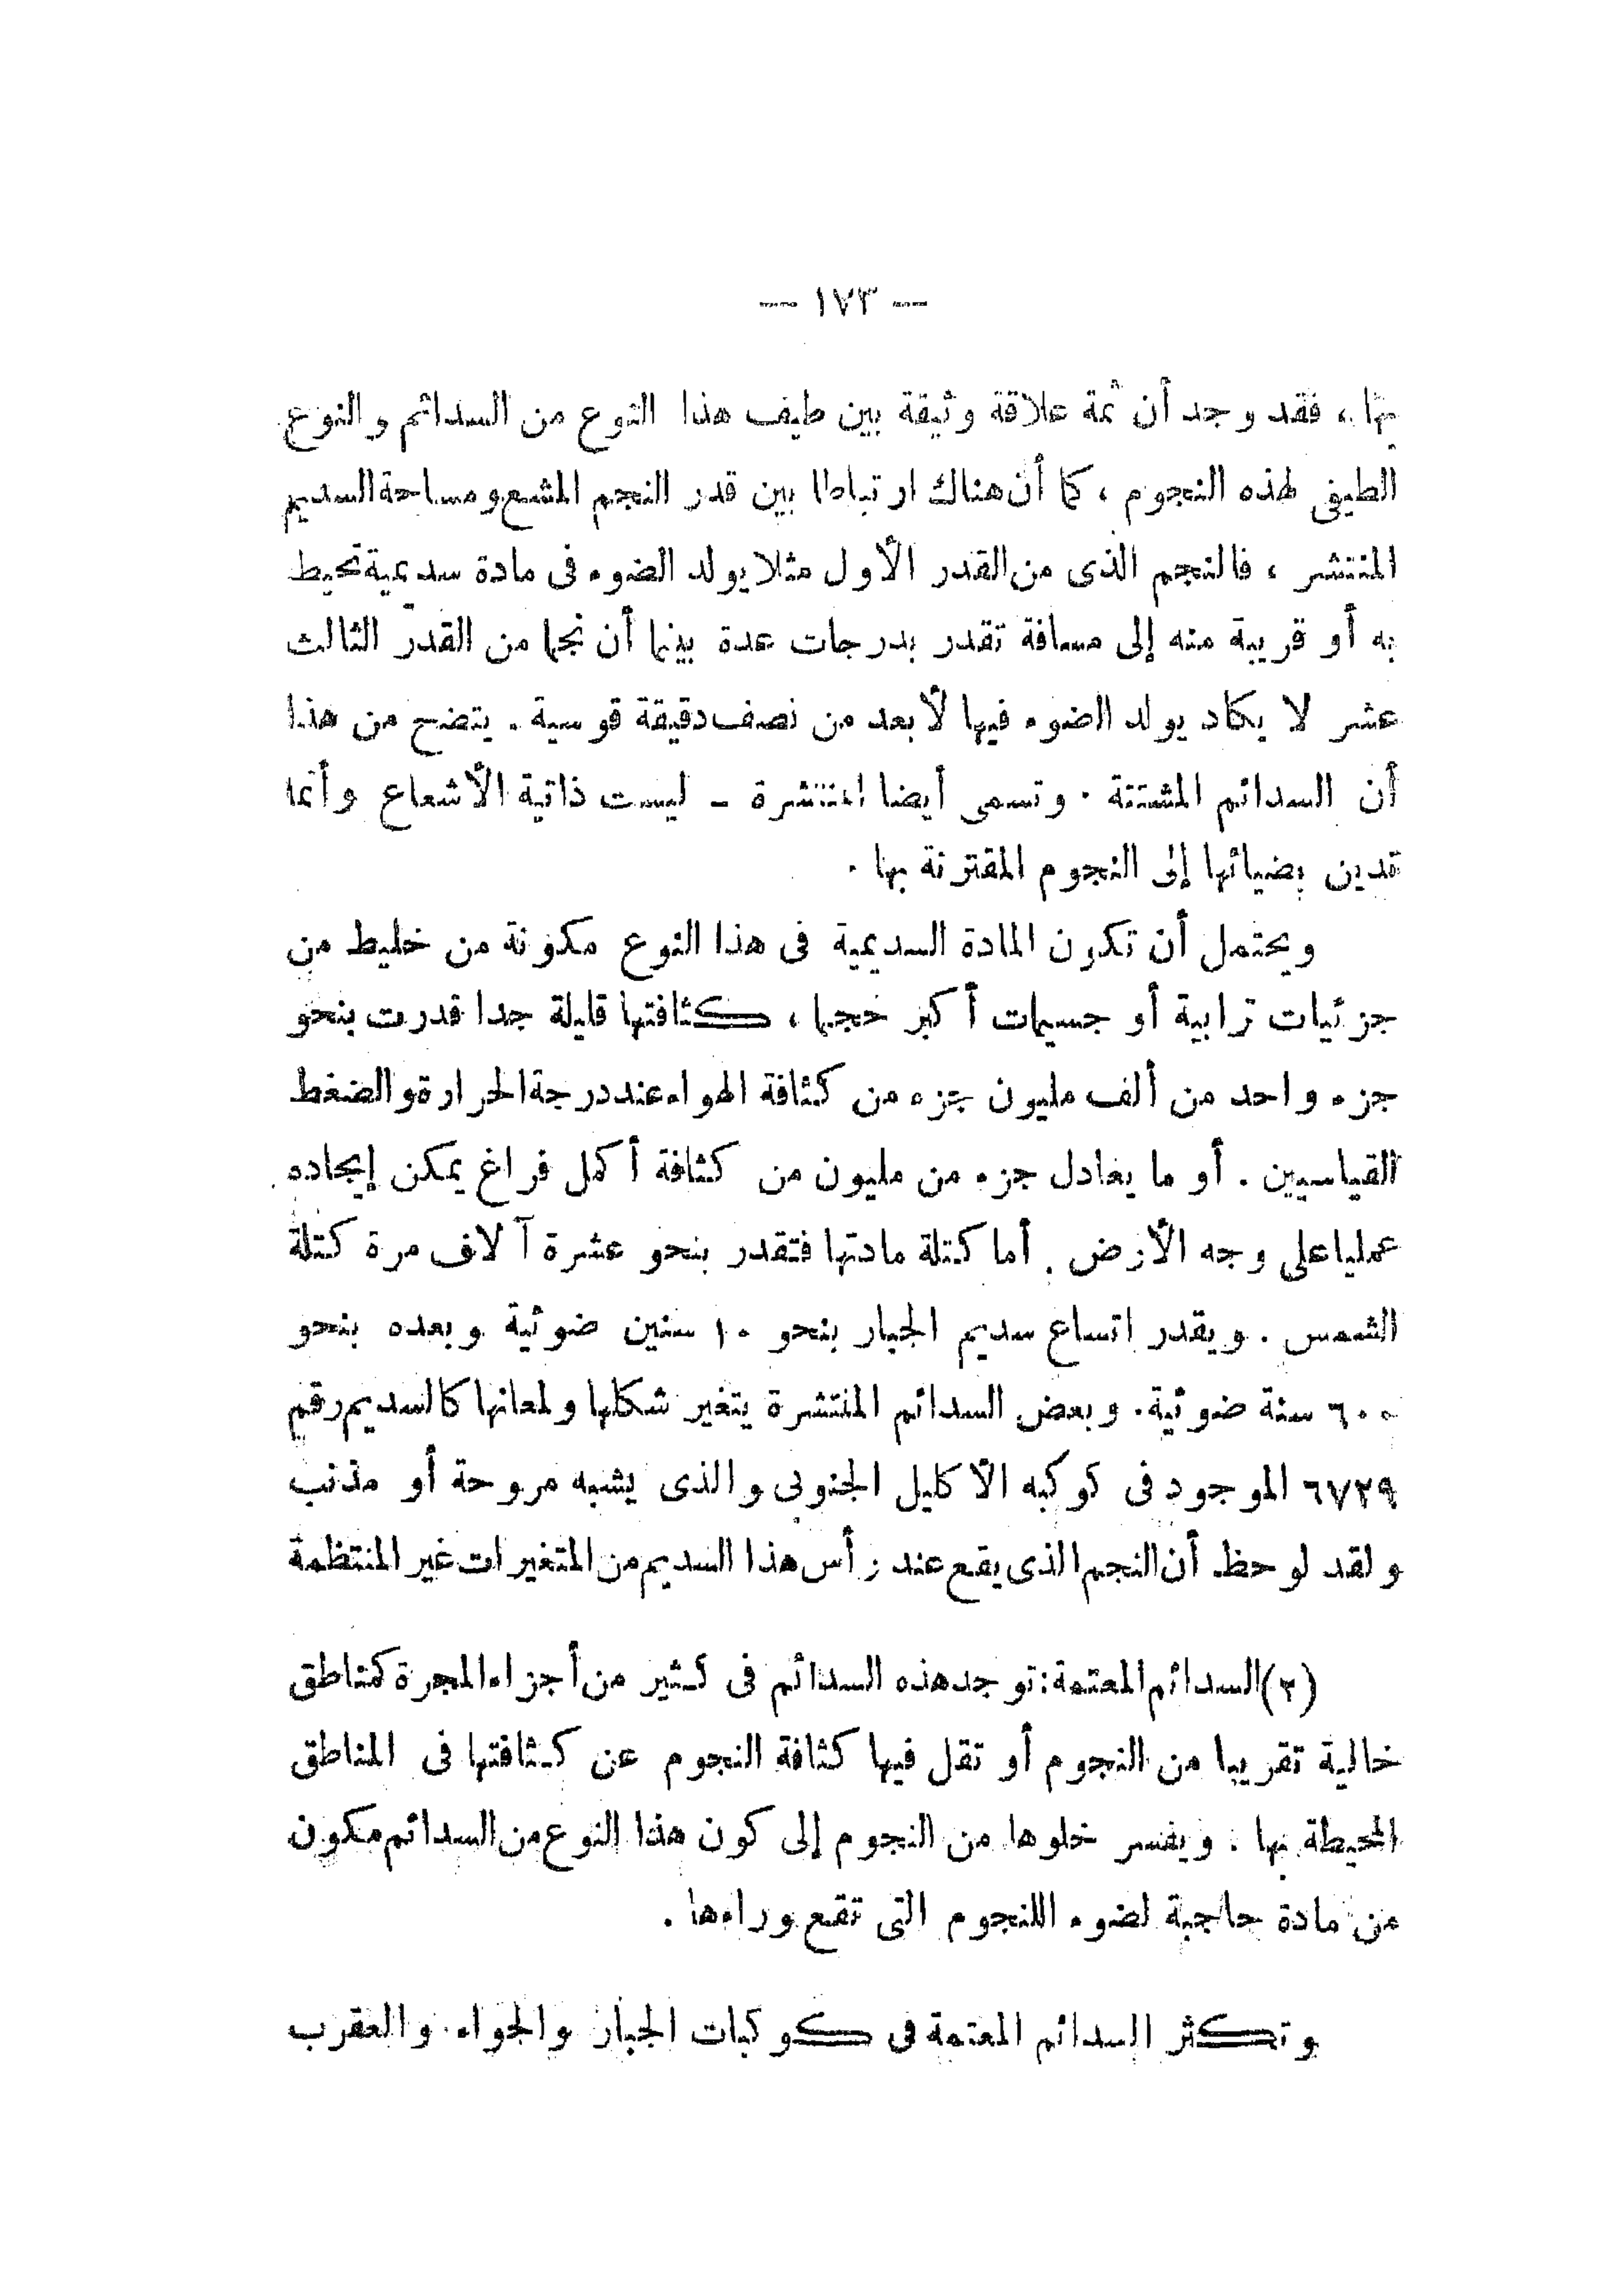 — ١٧٣ —
بها، فقد وجد أن ثمة علاقة وثيقة بين طيف هذا النوع من السدائم والنوع
الطيفى لهذه النجوم ، كما أن هناك ارتباطا بين قدر النجم المشع ومساحة السديم
المنتشر ، فالنجم الذى من القدر الأول مثلا يولد الضوء فى مادة سديمية تحيط
به أو قريبة منه إلى مسافة تقدر بدرجات عدة بينما أن نجما من القدر الثالث
عشر لا يكاد يولد الضوء فيها لأبعد من نصف دقيقة قوسية . يتضح من هذا
أن السدائم المشتتة . وتسمى أيضا المنتشرة - ليست ذاتية الأشعاع وأنما
تدين بضيائها إلى النجوم المقترنة بها .
ويحتمل أن تكون المادة السديمية فى هذا النوع مكونة من خليط من
جزئيات ترابية أو جسيمات أكبر حجما ، كثافتها قليلة جدا قدرت بنحو
جزء واحد من ألف مليون جزء من كثافة الهواء عند درجة الحرارة والضغط
القياسيين . أو ما يعادل جزء من مليون من كثافة أكمل فراغ يمكن إيجاده
عمليا على وجه الأرض . أما كتلة مادتها فتقدر بنحو عشرة آلاف مرة كتلة
الشمس . ويقدر اتساع سديم الجبار بنحو ١٠ سنين ضوئية وبعده بنحو
٦٠٠ سنة ضوئية . وبعض السدائم المنتشرة يتغير شكلها ولمعانها كالسديم رقم
٦٧٢٩ الموجود فى كوكبه الاكليل الجنوبى والذى يشبه مروحة أو مذنب
ولقد لوحظ أن النجم الذى يقع عند رأس هذا السديم من المتغيرات غير المنتظمة
(٢) السدائم المعتمة : توجد هذه السدائم فى كثير من أجزاء المجرة كمناطق
خالية تقريبا من النجوم أو تقل فيها كثافة النجوم عن كثافتها فى المناطق
المحيطة بها . ويفسر خلوها من النجوم إلى كون هذا النوع من السدائم مكون
من مادة حاجبة لضوء اللنجوم التى تقع وراءها .
وتكثر السدائم المعتمة فى كوكبات الجبار والحواء والعقرب